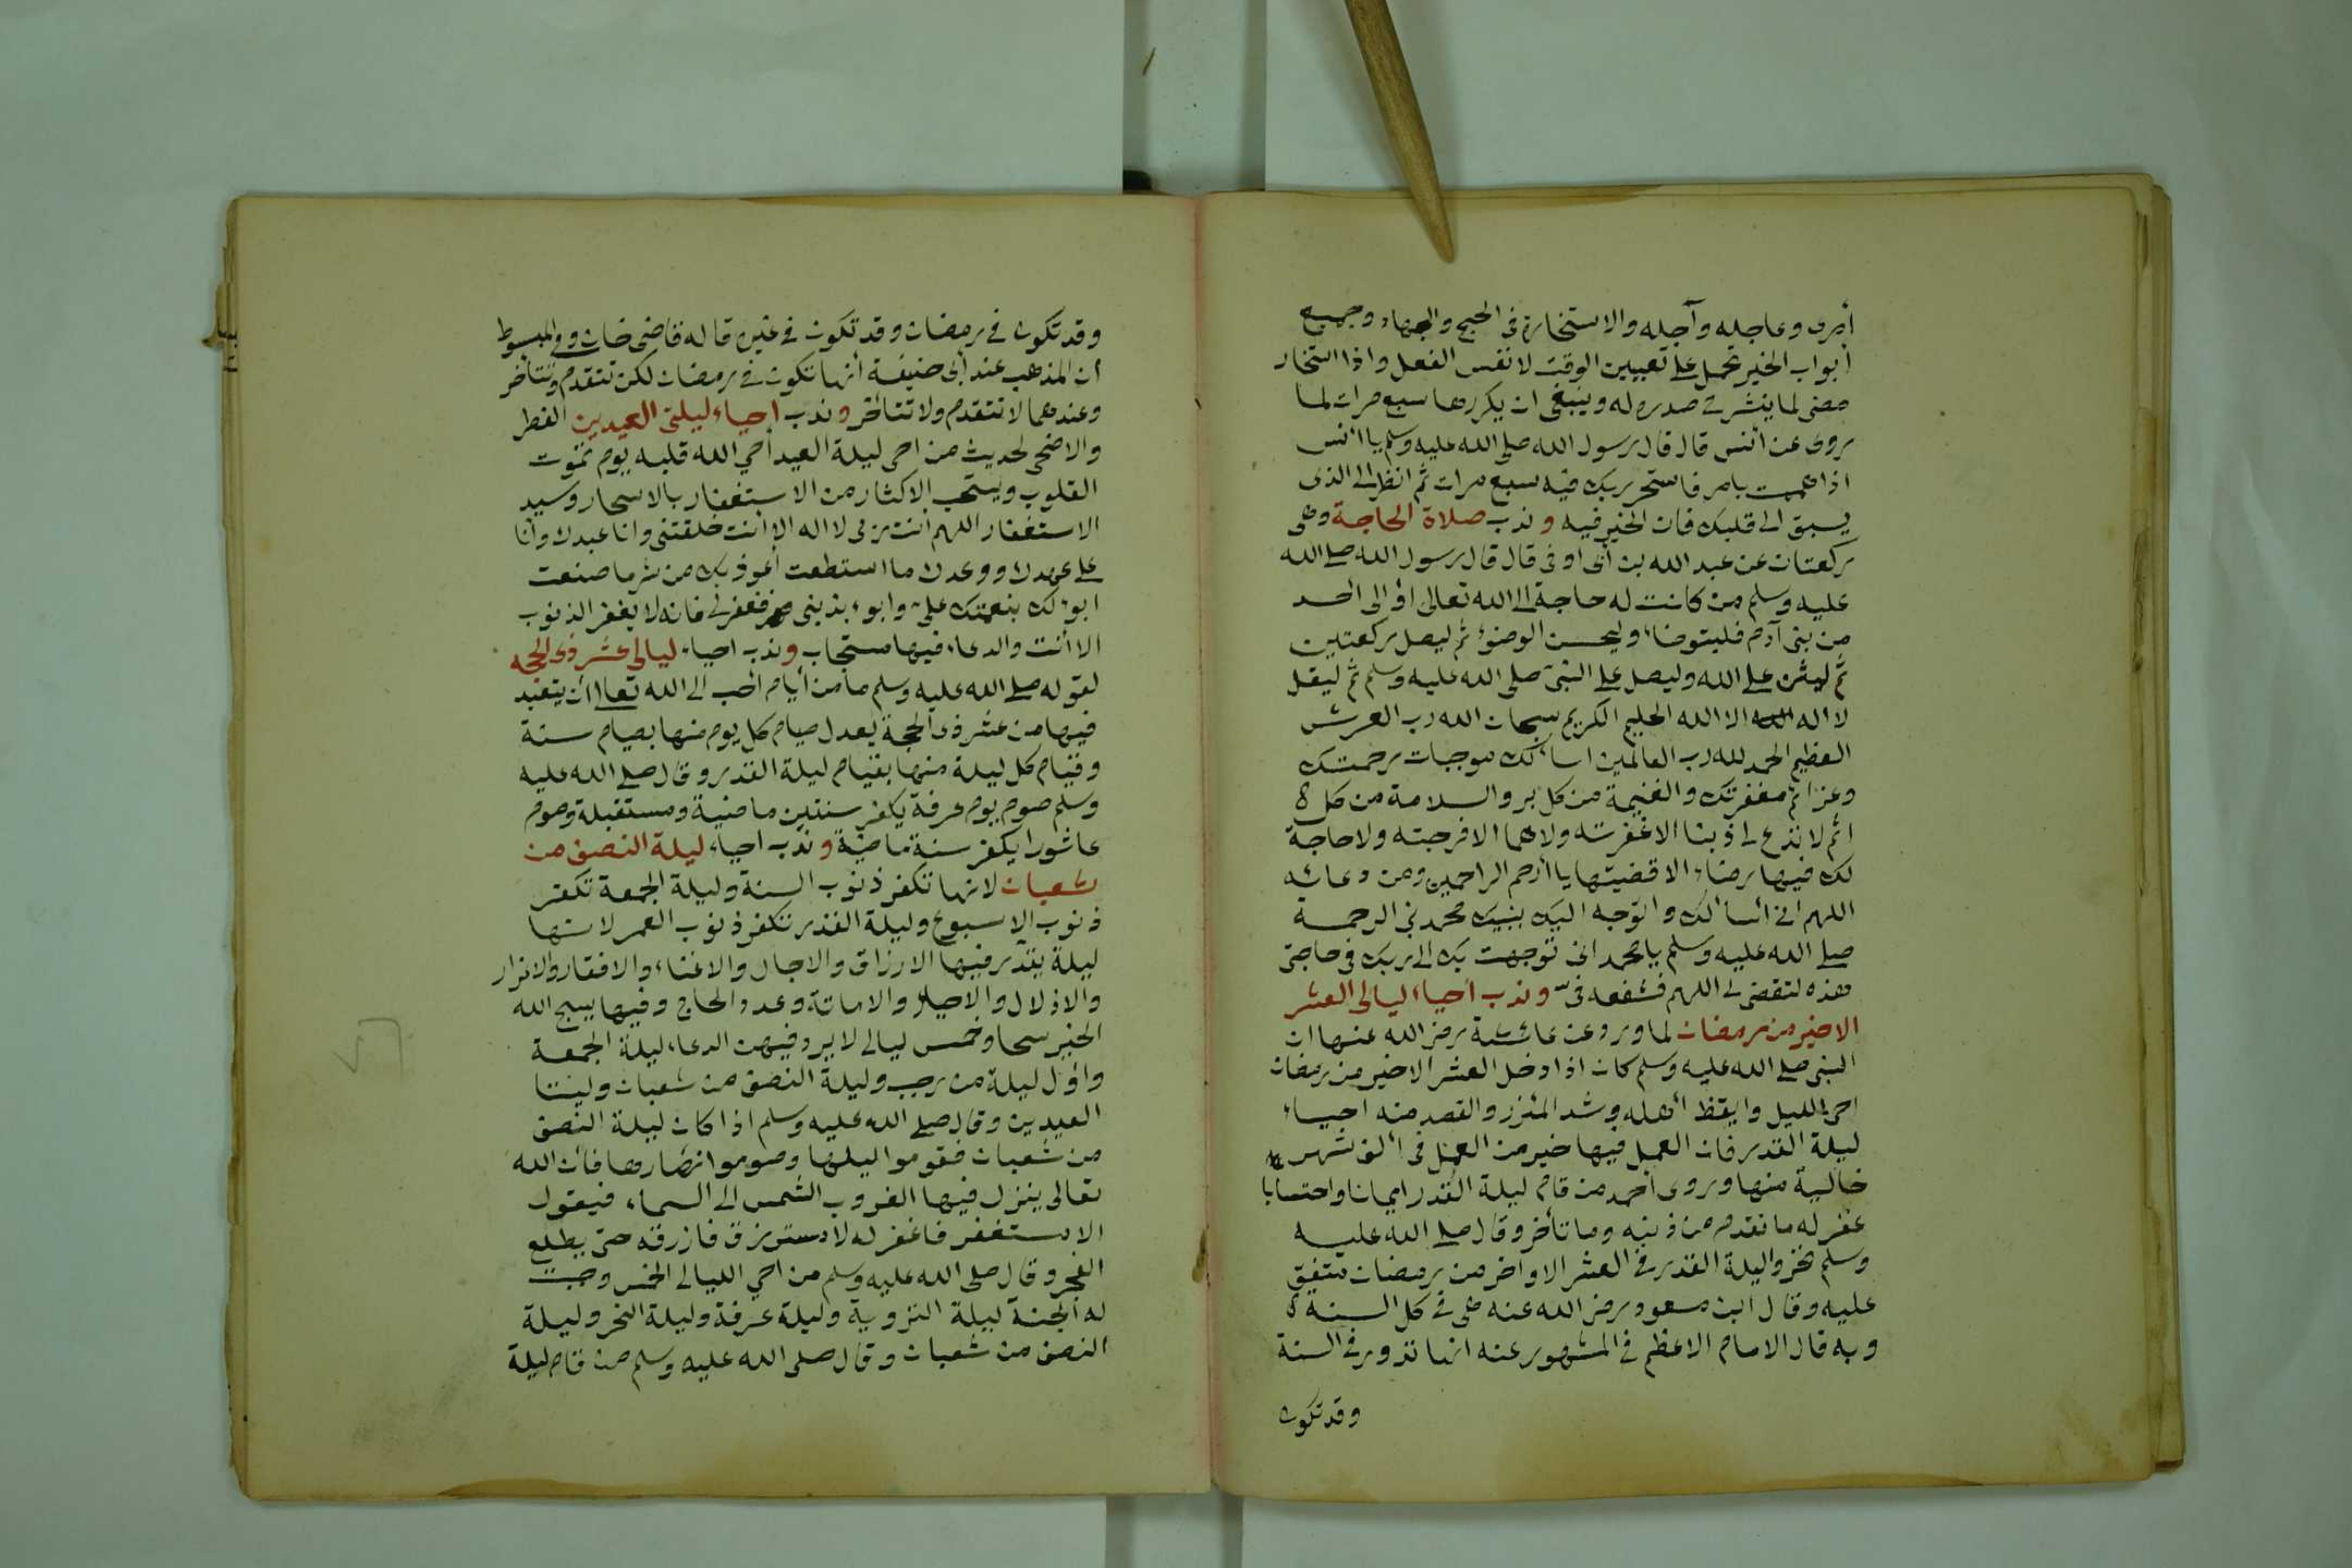 أمرى وعاجله وآجله والاستخارة فى الحج والجهاد وجميع
أبواب الخير تحمل على تعيين الوقت لا نفس الفعل واذا استخار
مضى لما ينشرح صدره له وينبغى ان يكررها سبع مرات لما
روى عن أنس قال قال رسول الله صلى الله عليه وسلم يا أنس
اذا هممت بامر فاستخر ربك فيه سبع مرات ثم انظر الى الذى
يسبق الى قلبك فان الخير فيه وندب صلاة الحاجة وهى
ركعتان عن عبد الله بن أبى اوفى قال قال رسول الله صلى الله
عليه وسلم من كانت له حاجة الى الله تعالى أو الى احد
من بنى آدم فليتوضأ وليحسن الوضوء ثم ليصل ركعتين
ثم ليثن على الله وليصل على النبى صلى الله عليه وسلم ثم ليقل
لا اله الا الله الحليم الكريم سبحان الله رب العرش
العظيم الحمد لله رب العالمين اسألك موجبات رحمتك
وعزائم مغفرتك والغنيمة من كل بر والسلامة من كل
اثم لا تدع لى ذنبا الا غفرته ولا هما الا فرجته ولا حاجة
لك فيها رضاء الا قضيتها يا أرحم الراحمين ومن دعائه
اللهم انى اسألك واتوجه اليك بنبيك محمد نبى الرحمة
صلى الله عليه وسلم يا محمد انى توجهت بك الى ربك فى حاجتى
هذه لتقضى لى اللهم فشفعه فىّ وندب احياء ليالى العشر
الاخير من رمضان لما ورد عن عائشة رضى الله عنها ان
النبى صلى الله عليه وسلم كان اذا دخل العشر الاخير من رمضان
احى الليل وايقظ أهله وشد المئزر والقصد منه احياء
ليلة القدر فان العمل فيها خير من العمل فى ألف شهر
خالية منها وروى أحمد من قام ليلة القدر ايمانا واحتسابا
غفر له ما تقدم من ذنبه وما تأخر وقال صلى الله عليه
وسلم تحروا ليلة القدر فى العشر الاواخر من رمضان متفق
عليه وقال ابن مسعود رضى الله عنه هى فى كل السنة
وبه قال الامام الاعظم فى المشهور عنه انها تدور فى السنة
وقد تكون
وقد تكون فى رمضان وقد تكون فى غيره قاله قاضى خان وفى المبسوط
ان المذهب عند أبى حنيفة أنها تكون فى رمضان لكن تتقدم وتتأخر
وعندهما لا تتقدم ولا تتأخر وندب احياء ليلتى العيدين الفطر
والاضحى لحديث من احى ليلة العيد أحي الله قلبه يوم تموت
القلوب ويستحب الاكثار من الاستغفار بالاسحار وسيد
الاستغفار اللهم أنت ربى لا اله الا أنت خلقتنى وانا عبدك وأنا
على عهدك ووعدك ما استطعت أعوذ بك من شر ما صنعت
ابوء لك بنعمتك علىّ وابوء بذنبى فغفر لى فانه لا يغفر الذنوب
الا أنت والدعاء فيها مستجاب وندب احياء ليالى عشر ذى الحجه
لقوله صلى الله عليه وسلم ما من أيام احب الى الله تعالى أن يتعبد
فيها من عشر ذى الحجة يعدل صيام كل يوم منها بصيام سنة
وقيام كل ليلة منها بقيام ليلة القدر وقال صلى الله عليه
وسلم صوم يوم عرفة يكفر سنتين ماضية ومستقبلة وصوم
عاشورا يكفر سنة ماضية وندب احياء ليلة النصف من
شعبان لانها تكفر ذنوب السنة وليلة الجمعة تكفر
ذنوب الاسبوع وليلة القدر تكفر ذنوب العمر لانها
ليلة يقدر فيها الارزاق والاجال والاغناء والافقار والاعزاز
والاذلال والاحياء والاماتة وعدد الحاج وفيها يسبح الله
الخير سحا وخمس ليالى لا يرد فيهن الدعاء ليلة الجمعة
واول ليلة من رجب وليلة النصف من شعبان وليلتا
العيدين وقال صلى الله عليه وسلم اذا كان ليلة النصف
من شعبان فقوموا ليلها وصوموا نهارها فان الله
تعالى ينزل فيها الغروب الشمس الى السماء فيقول
الا مستغفر فاغفر له الا مسترزق فازرقه حتى يطلع
الفجر وقال صلى الله عليه وسلم من احي الليالى الخمس وجبت
له الجنة ليلة التروية وليلة عرفة وليلة النحر وليلة
النصف من شعبان وقال صلى الله عليه وسلم من قام ليلة